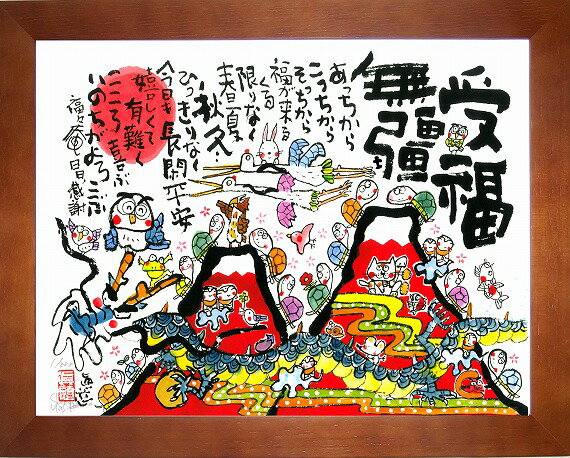 受福
無疆
あっちから
こっちから
そっちから
福が来る
くる
限りなく
春夏
秋冬
ひっきりなく
今日も長閑平安
嬉しくて
有難く
こころ喜ぶ
いのちがよろこぶ